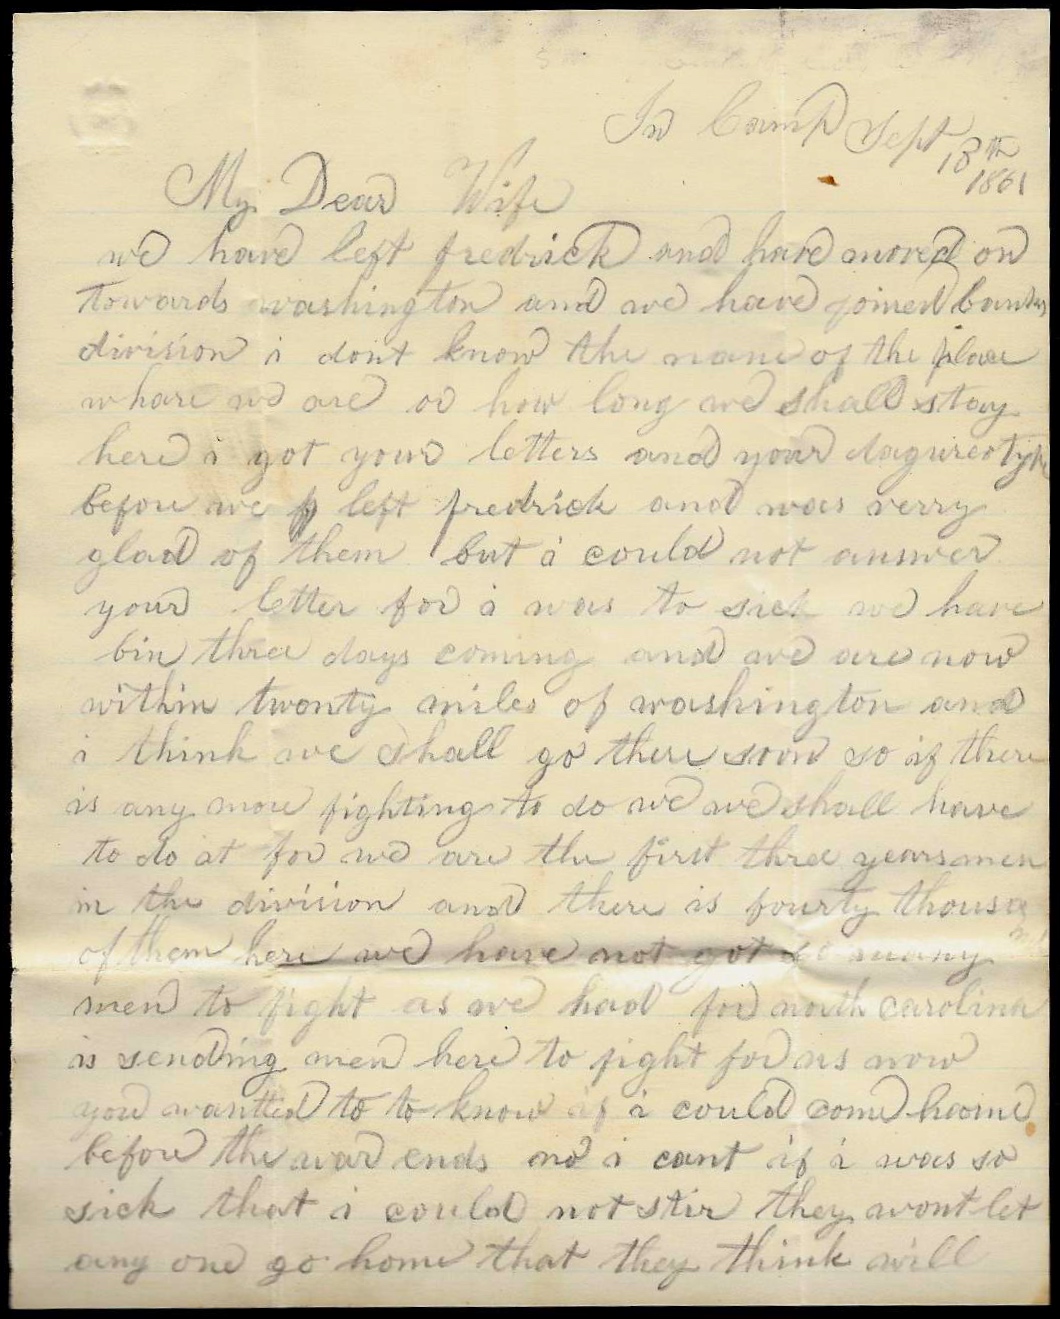 In Camp Sept 18th
1861
My Dear Wife
we have left fredrick and have moved on
towards washington and we have joined banks
division i dont know the name of the place
whare we are or how long we shall stay
here i got your letters and your dagureotype
before we left fredrick and was verry
glad of them but i could not answer
your letter for i was to sick we have
bin three days coming and we are now
within twonty miles of washington and
i think we shall go there soon so if there
is any more fighting to do we we shall have
to do it for we are the first three years men
in the division and there is fourty thousand
of them here we have not got so many
men to fight as we had for north carolina
is sending men here to fight for us now
you wantted to to know if i could come home
before the war ends no i cant if i was so
sick that i could not stir they wont let
any one go home that they think will